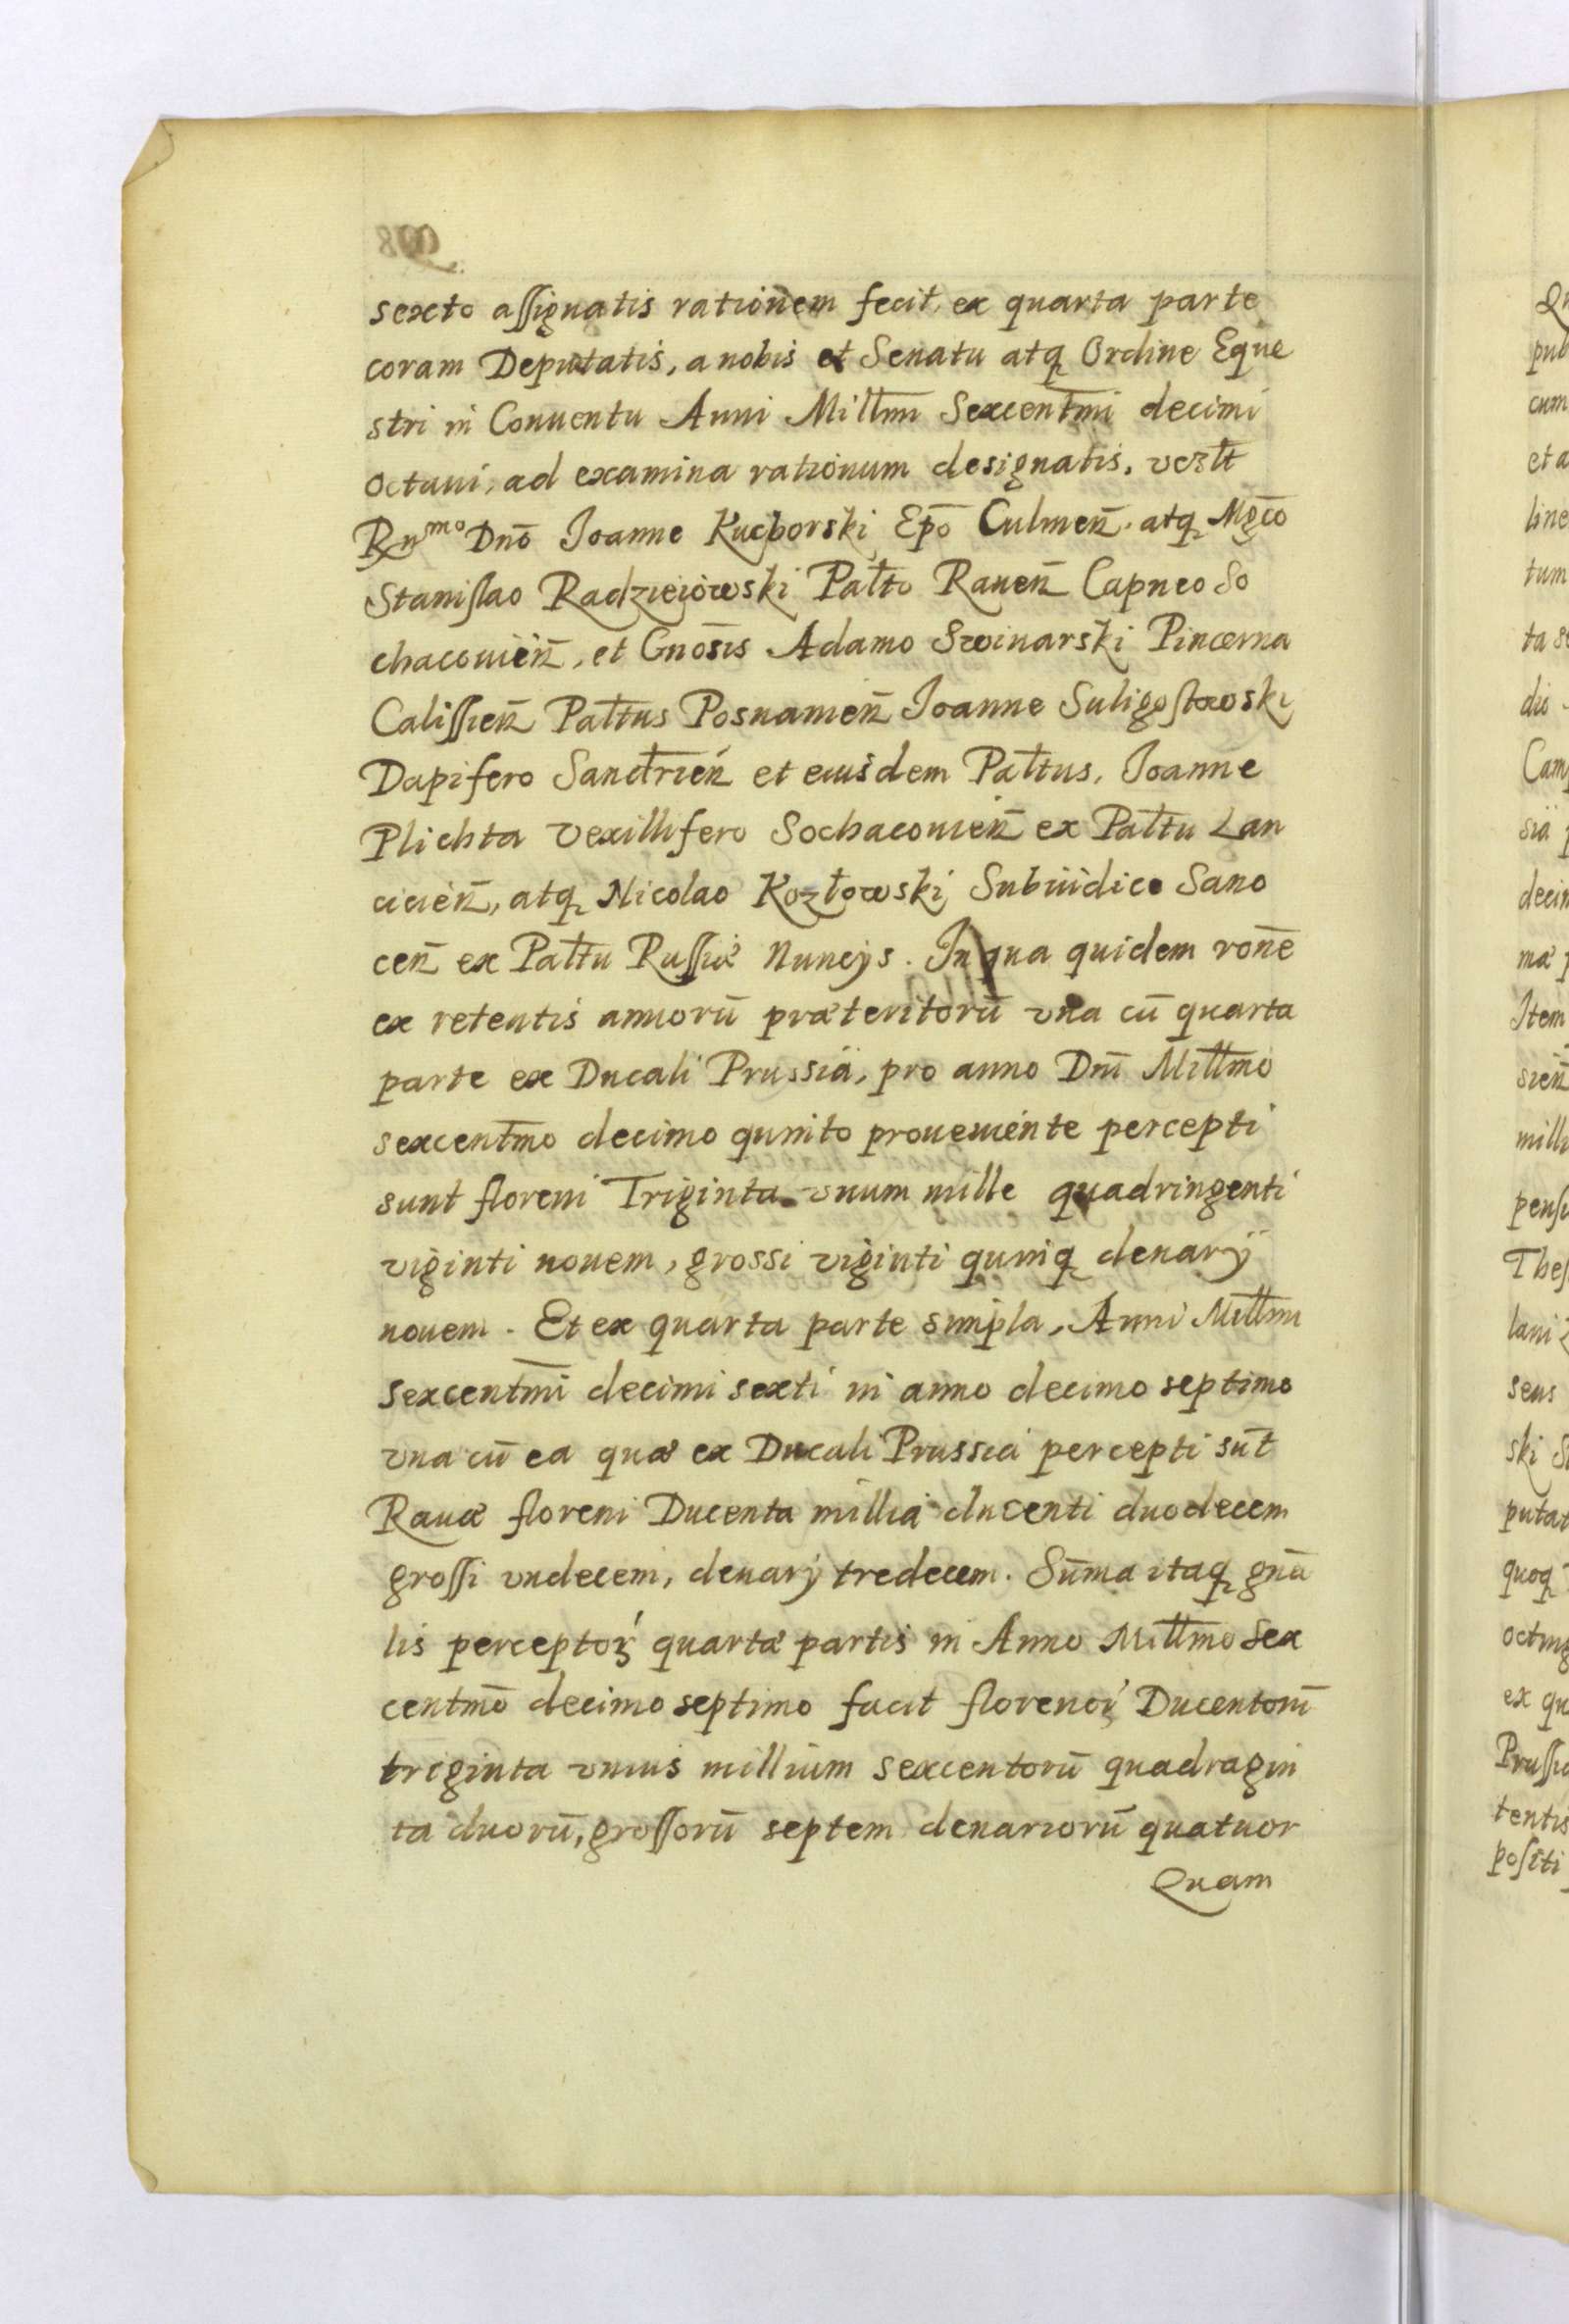 sexto assignatis rationem fecit, ex quarta parte
coram Deputatis, a nobis et Senatu atq Ordine Eque
stri in Conuentu Anni Millmi Sexcentmi decimi
octaui, ad examina rationum designatis, vczlt
Rnmo Dno Joanne Kucborski Epo Culmen. atq Mgco
Stanislao Radzieiowski Palto Rauen Capneo So
chaconien, et Gnosis Adamo Swinarski Pincerna
Calissien Paltus Posnanien Joanne Suligostowski
Dapifero Sandrien et eiusdem Paltus, Joanne
Plichta vexillifero Sochaconien ex Paltu Lan
cicien, atq Nicolao Kozłowski Subiudice Sano
cen ex Paltu Russiæ Nuncys. In qua quidem rone
ex retentis annorū præteritorū vna cū quarta
parte ex Ducali Prussia, pro anno Dni Millmo
sexcentmo decimo quinto proueniente percepti
sunt floreni Triginta vnum mille quadringenti
viginti nouem, grossi viginti quinq denarÿ
nouem. Et ex quarta parte simpla, Anni Millmi
sexcentmi decimi sexti in anno decimo septimo
vna cū ea quæ ex Ducali Prussia percepti sūt
Rauæ floreni Ducenta millia ducenti duodecem
grossi vndecem, denarÿ tredecem. Sūma itaq gnā
lis perceptoꝝ quartæ partis in Anno Millmo Sex
centmo decimo septimo facit florenoꝝ Ducentorū
triginta vnius millium sexcentorū quadragin
ta duorū, grossorū septem denariorū quatuor
Quam